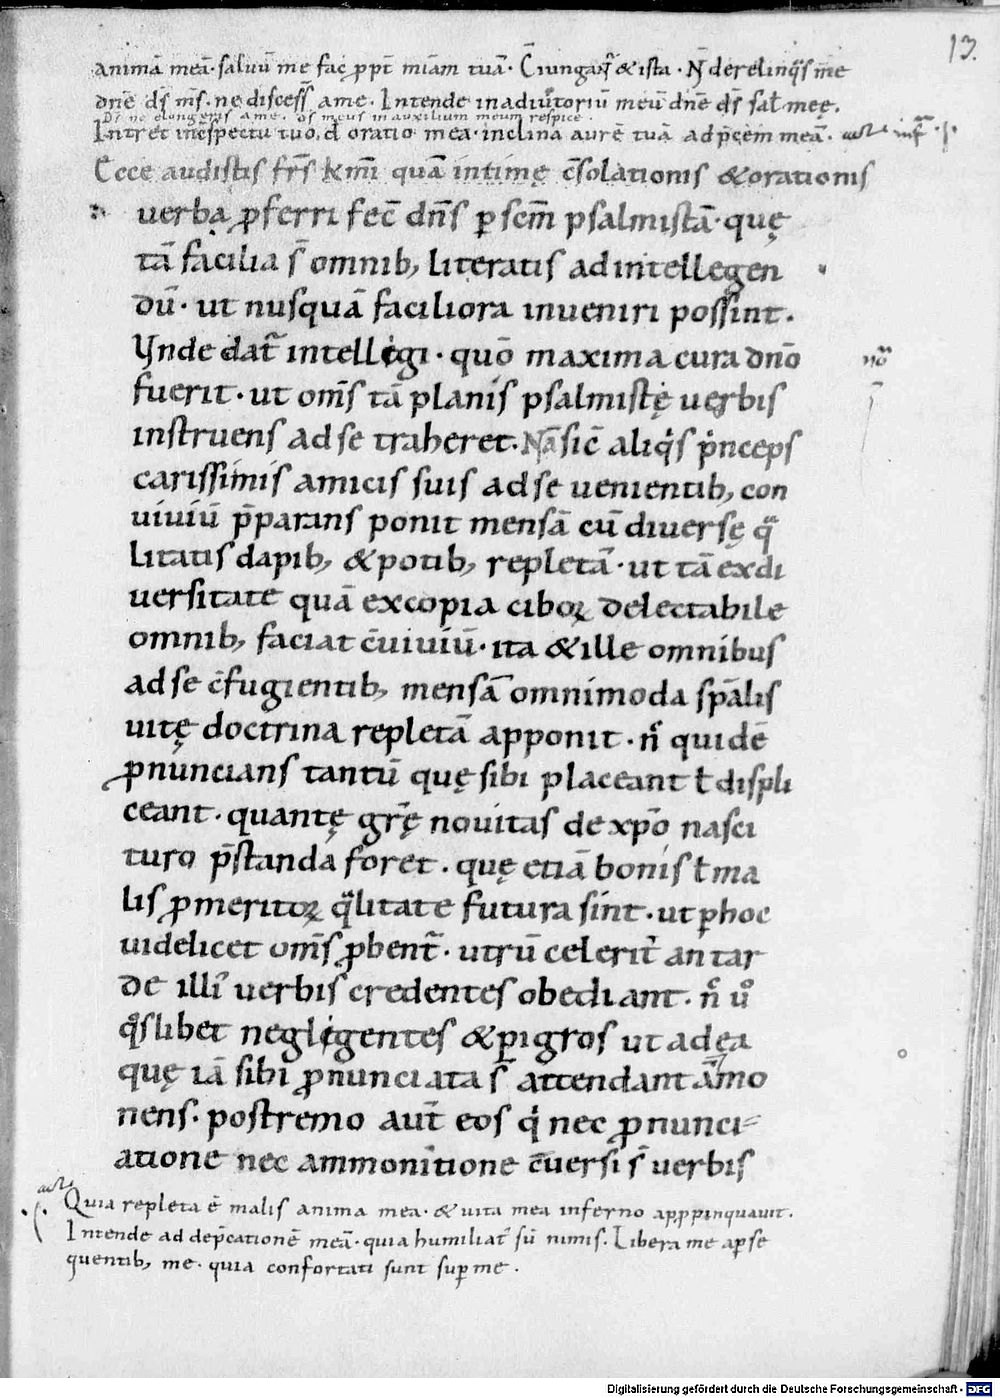 13.
animā meā· saluū me fac ꝓpt̄ miām tuā· C̄iungat᷑ & ista· N̄ derelinqͥs me
dn̄e ds̄ ms̄· ne discess̄ a me· Intende in adiut̄oriū meū dn̄e ds̄ sal̄ meę.
Ds̄ ne elongeris a me· ds̄ meus in auxilium meum respice·
Intret in c̄spectu tuo, d̄ oratio mea· inclina aurē tuā ad p̄cem meā·
Ecce audistis frs̄ k̄mi quā intimę c̄solationis & orationis
uerba ꝓferri fec̄ dn̄s ꝑ sem̄ psalmistā· quę
tā facilia s̄ omnib; literatis ad intellegen
dū· ut nusquā faciliora inueniri possint.
Vnde dat᷑ intellegi· quō maxima cura dn̄o
nō
fuerit· ut om̄s tā planis psalmistę uerbis
instruens ad se traheret. Nā sic̄ aliqͥs pͥnceps
carissimis amicis suis ad se uenientib; con
uiuiū p̄parans ponit mensā cū diuersę qͣ
litatis dapib; & potib; repletā· ut tā ex di
uersitate quā ex copia ciboꝝ delectabile
omnib; faciat c̄uiuiū· ita & ille omnibus
ad se c̄fugientib; mensā omnimoda sp̄alis
uitę doctrina repletā apponit· n̄ quidē
ꝓnuncians tantū quę sibi placeant ł displi
ceant· quantę gr̄ę nouitas de xp̄o nasci
turo p̄standa foret· quę etiā bonis ł ma
lis ꝓ meritoꝝ qͣlitate futura sint· ut ꝑ hoc
uidelicet om̄s ꝓbent᷑· utrū celerit᷑ an tar
de illi᷒ uerbis credentes obediant· n̄ uͦ
qͦslibet negligentes & pigros ut ad ea
quę iā sibi ꝓnunciata s̄ attendant āmo
nens· postremo aut̄ eos qͥ nec ꝓnunci-
atione nec ammonitione c̄uersi s̄ uerbis
Quia repleta ē malis anima mea· & uita mea inferno appropinquauit.
Intende ad dep̄cationē meā· quia humiliat᷒ sū nimis. Libera me a ꝑse
quentib; me· quia confortati sunt sup̄ me.
Digitalisierung gefördert durch die Deutsche Forschungsgemeinschaft - DFG